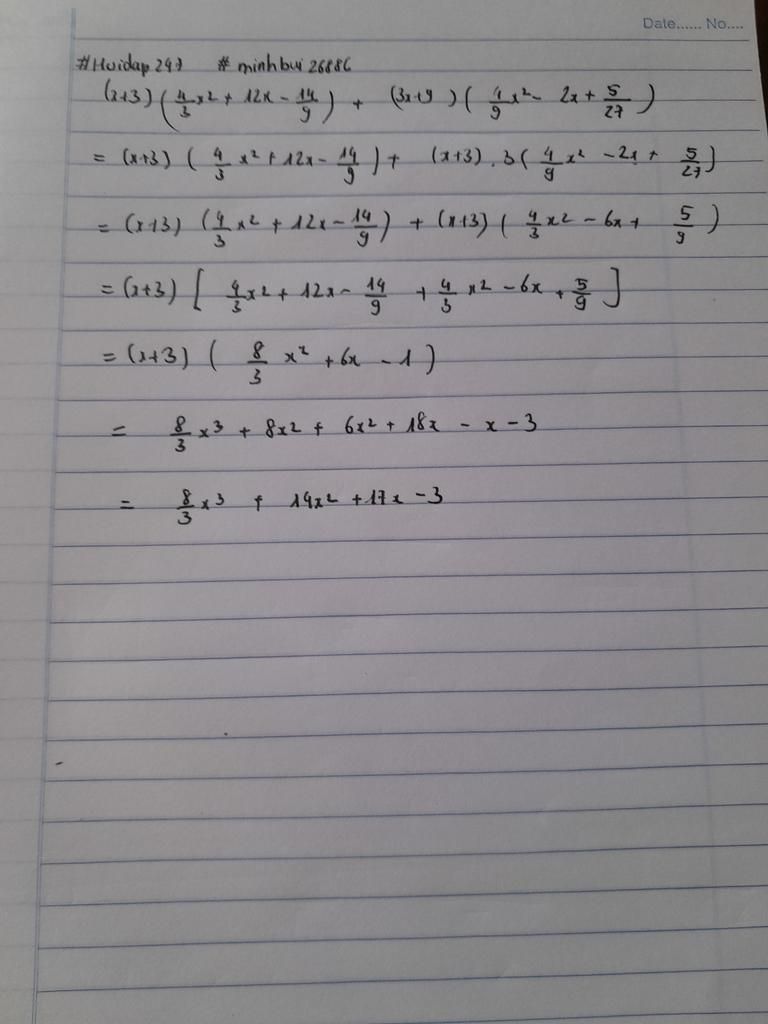 Date...... No....
#Hoidap247 #minhbui26886
(x+3)(4/3x² + 12x - 14/9) + (3x+9)(4/9x² - 2x + 5/27)
= (x+3)(4/3x² + 12x - 14/9) + (x+3).3(4/9x² - 2x + 5/27)
= (x+3)(4/3x² + 12x - 14/9) + (x+3)(4/3x² - 6x + 5/9)
= (x+3)[4/3x² + 12x - 14/9 + 4/3x² - 6x + 5/9]
= (x+3)(8/3x² + 6x - 1)
= 8/3x³ + 8x² + 6x² + 18x - x - 3
= 8/3x³ + 14x² + 17x - 3